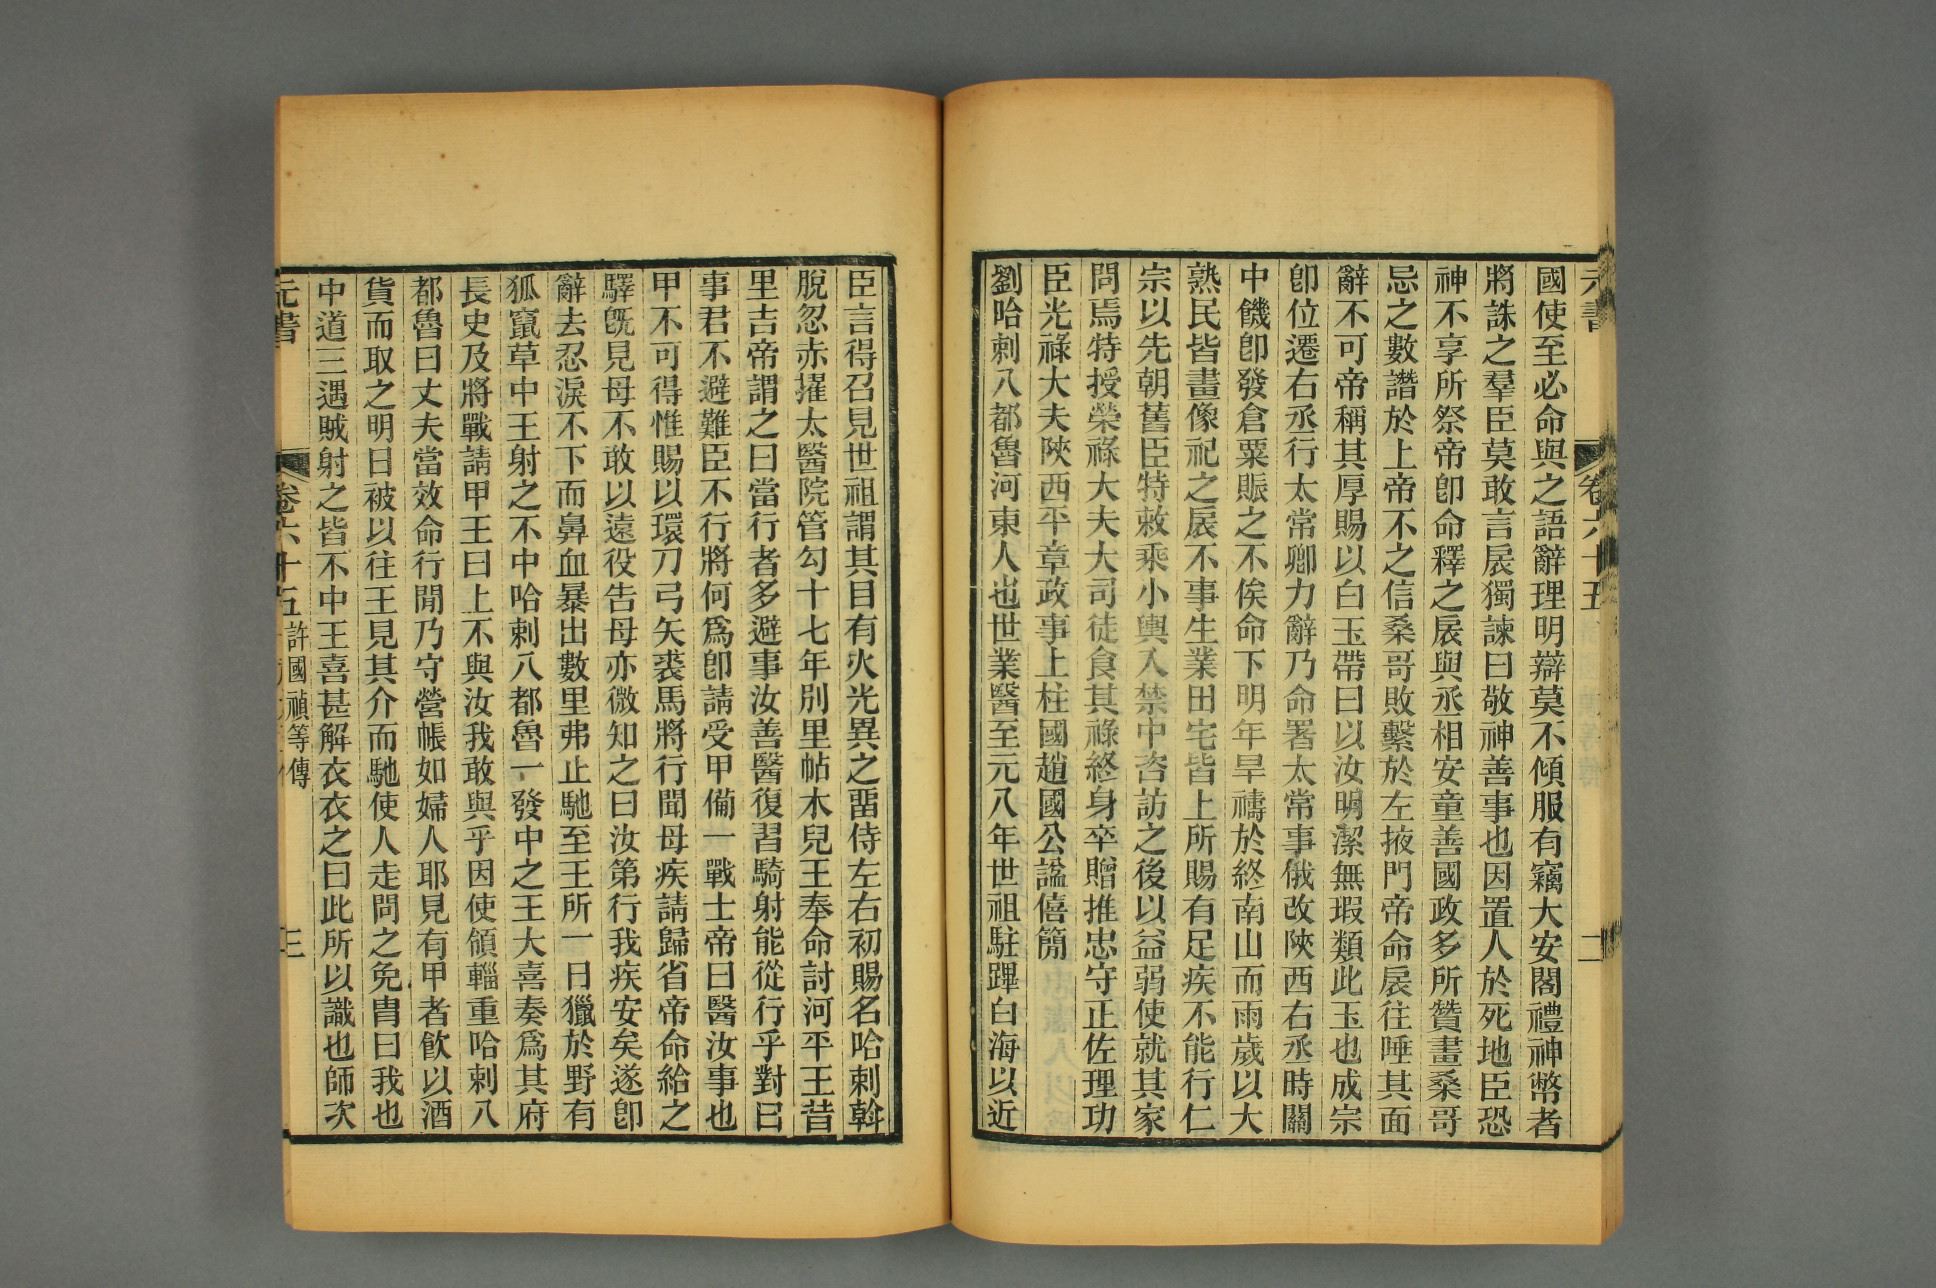 元書
卷六十五
二
國使至必命與之語辭理明辯莫不傾服有竊大安閣禮神幣者
將誅之羣臣莫敢言扆獨諫曰敬神善事也因置人於死地臣恐
神不享所祭帝卽命釋之扆與丞相安童善國政多所贊畫桑哥
忌之數譖於上帝不之信桑哥敗繫於左掖門帝命扆往唾其面
辭不可帝稱其厚賜以白玉帶曰以汝明潔無瑕類此玉也成宗
卽位遷右丞行太常卿力辭乃命署太常事俄改陝西右丞時關
中饑卽發倉粟賑之不俟命下明年旱禱於終南山而雨歲以大
熟民皆畫像祀之扆不事生業田宅皆上所賜有足疾不能行仁
宗以先朝舊臣特敕乘小輿入禁中咨訪之後以益弱使就其家
問焉特授榮祿大夫大司徒食其祿終身卒贈推忠守正佐理功
臣光祿大夫陝西平章政事上柱國趙國公諡僖簡
劉哈剌八都魯河東人也世業醫至元八年世祖駐蹕白海以近
臣言得召見世祖謂其目有火光異之畱侍左右初賜名哈剌斡
脫忽赤擢太醫院管勾十七年別里帖木兒王奉命討河平王昔
里吉帝謂之曰當行者多避事汝善醫復習騎射能從行乎對曰
事君不避難臣不行將何爲卽請受甲備一戰士帝曰醫汝事也
甲不可得惟賜以環刀弓矢裘馬將行聞母疾請歸省帝命給之
驛旣見母不敢以遠役告母亦微知之曰汝第行我疾安矣遂卽
辭去忍淚不下而鼻血暴出數里弗止馳至王所一日獵於野有
狐竄草中王射之不中哈剌八都魯一發中之王大喜奏爲其府
長史及將戰請甲王曰上不與汝我敢與乎因使領輜重哈剌八
都魯曰丈夫當效命行閒乃守營帳如婦人耶見有甲者飲以酒
貨而取之明日被以往王見其介而馳使人走問之免冑曰我也
中道三遇賊射之皆不中王喜甚解衣衣之曰此所以識也師次
元書
卷六十五
許國禎等傳
三